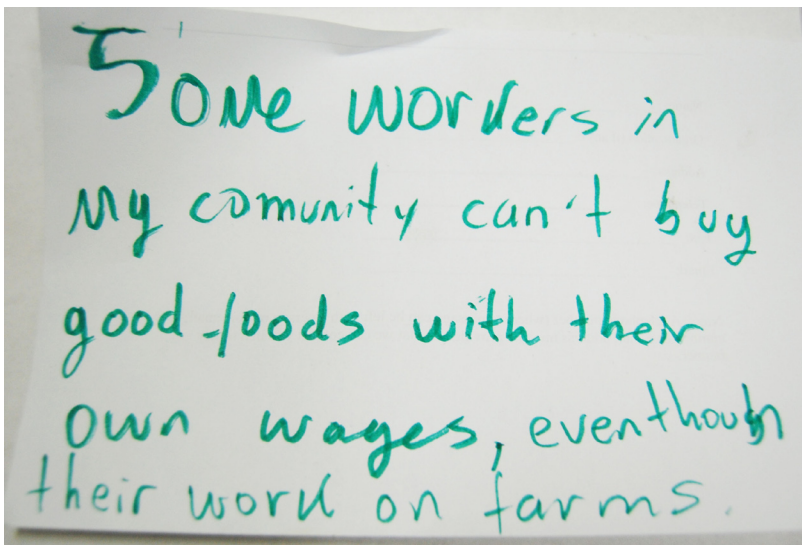 Some workers in
my comunity can't buy
good foods with their
own wages, eventhough
their work on farms.